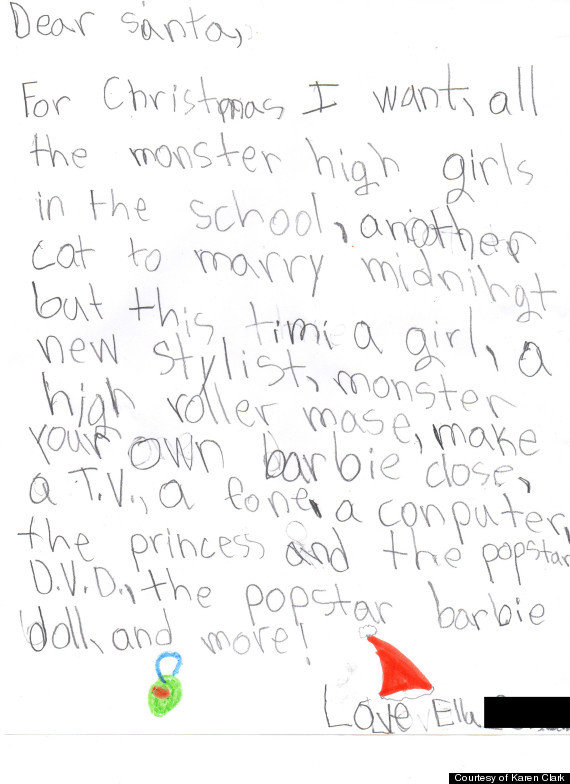 Dear santa,
For Christmas I want, all
the monster high girls
in the school, another
cat to marry midnihgt
but this timi a girl, a
new stylist, monster
high roller mase, make
your own barbie close,
a T.V., a fone, a conputer,
the princess and the popstar
D.V.D., the popstar barbie
doll, and more!
Love Ella
Courtesy of Karen Clark